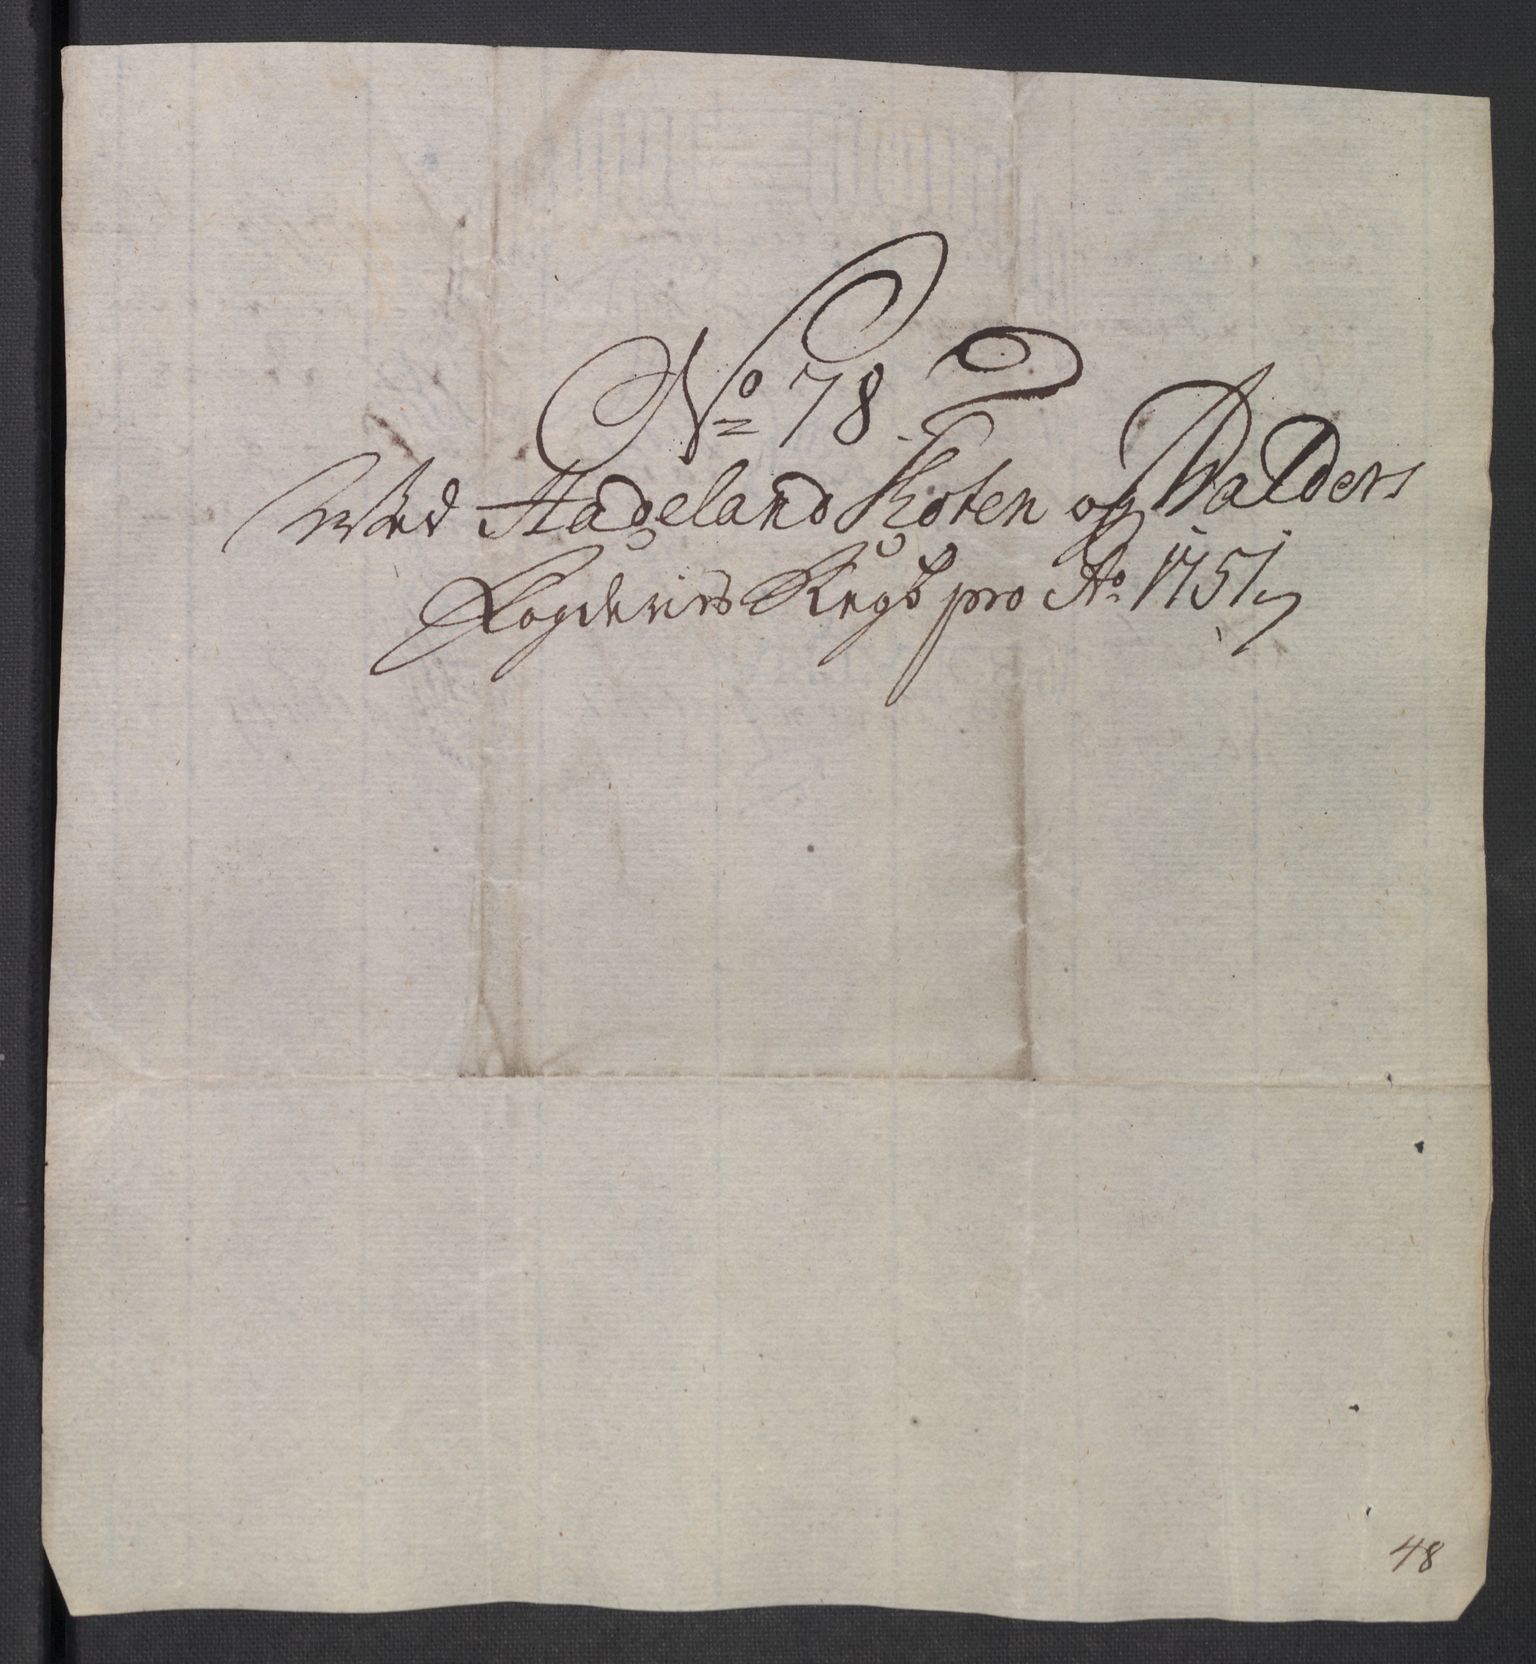 No 78
Ved Hadeland Toten og Walders
Fogderies Regsk pro Ao 1751
48